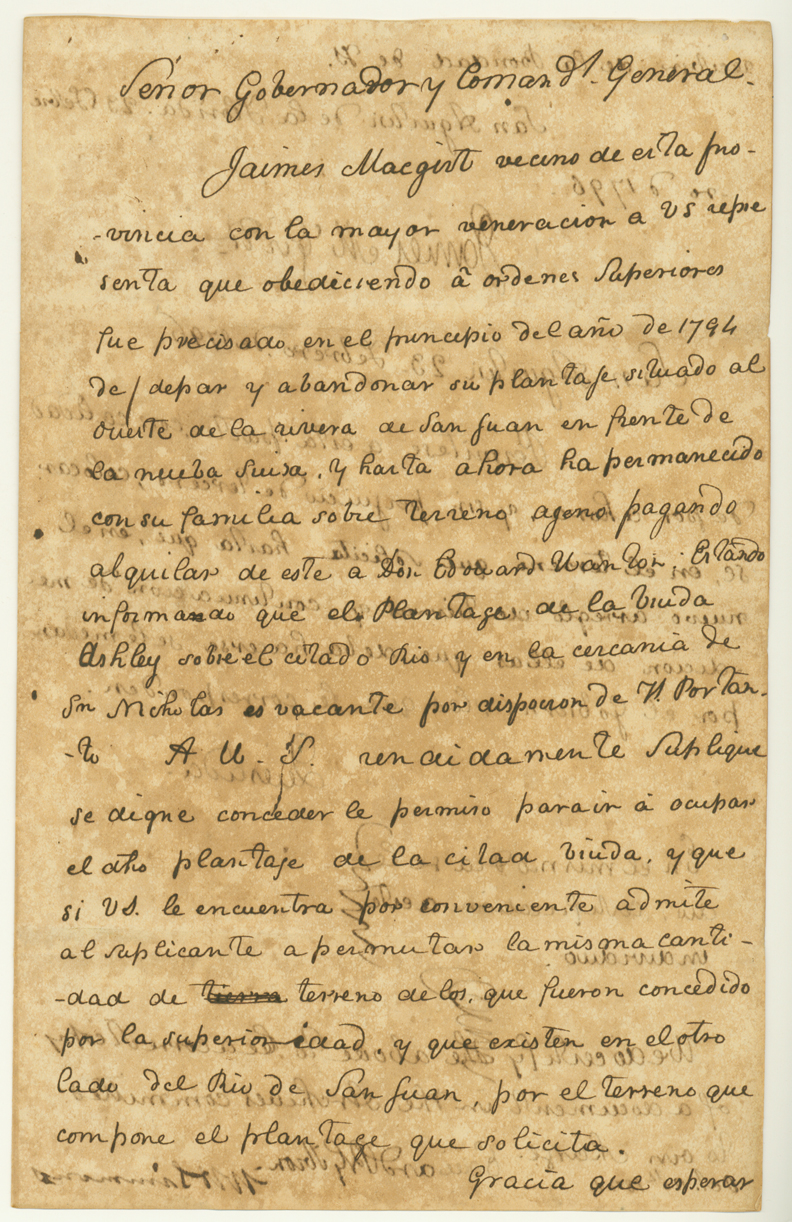 Señor Gobernador y Comandt. General.
Jaimes Macgirt vecino de esta pro-
-vincia con la mayor veneracion a VS repre
senta que obedeciendo â ordenes Superiores
fue precisado en el principio del año de 1794
de / depar y abandonar su plantaje situado al
oueste de la rivera de San Juan en frente de
la nueba Suisa, y hasta ahora ha permanecido
con su familia sobre terreno ageno pagando
alquilar de este a Don Edouard Wanton. Estando
informando que el Plantage de la Viuda
Ashley sobre el citado Rio y en la cercania de
Sn Nicholas es vacante por dispocion de V. Por tan-
-to A U. S. rendidamente Suplique
se digne conceder le permiso para ir â ocupar
el dho plantaje de la citad Viuda, y que
si VS. le encuentra por conveniente admite
al suplicante a permutar la misma canti-
-dad de tierra terreno de los, que fueron concedido
por la superioridad, y que existen en el otro
lado del Rio de San Juan, por el terreno que
compone el plantage que solicita.
Gracia que esperar